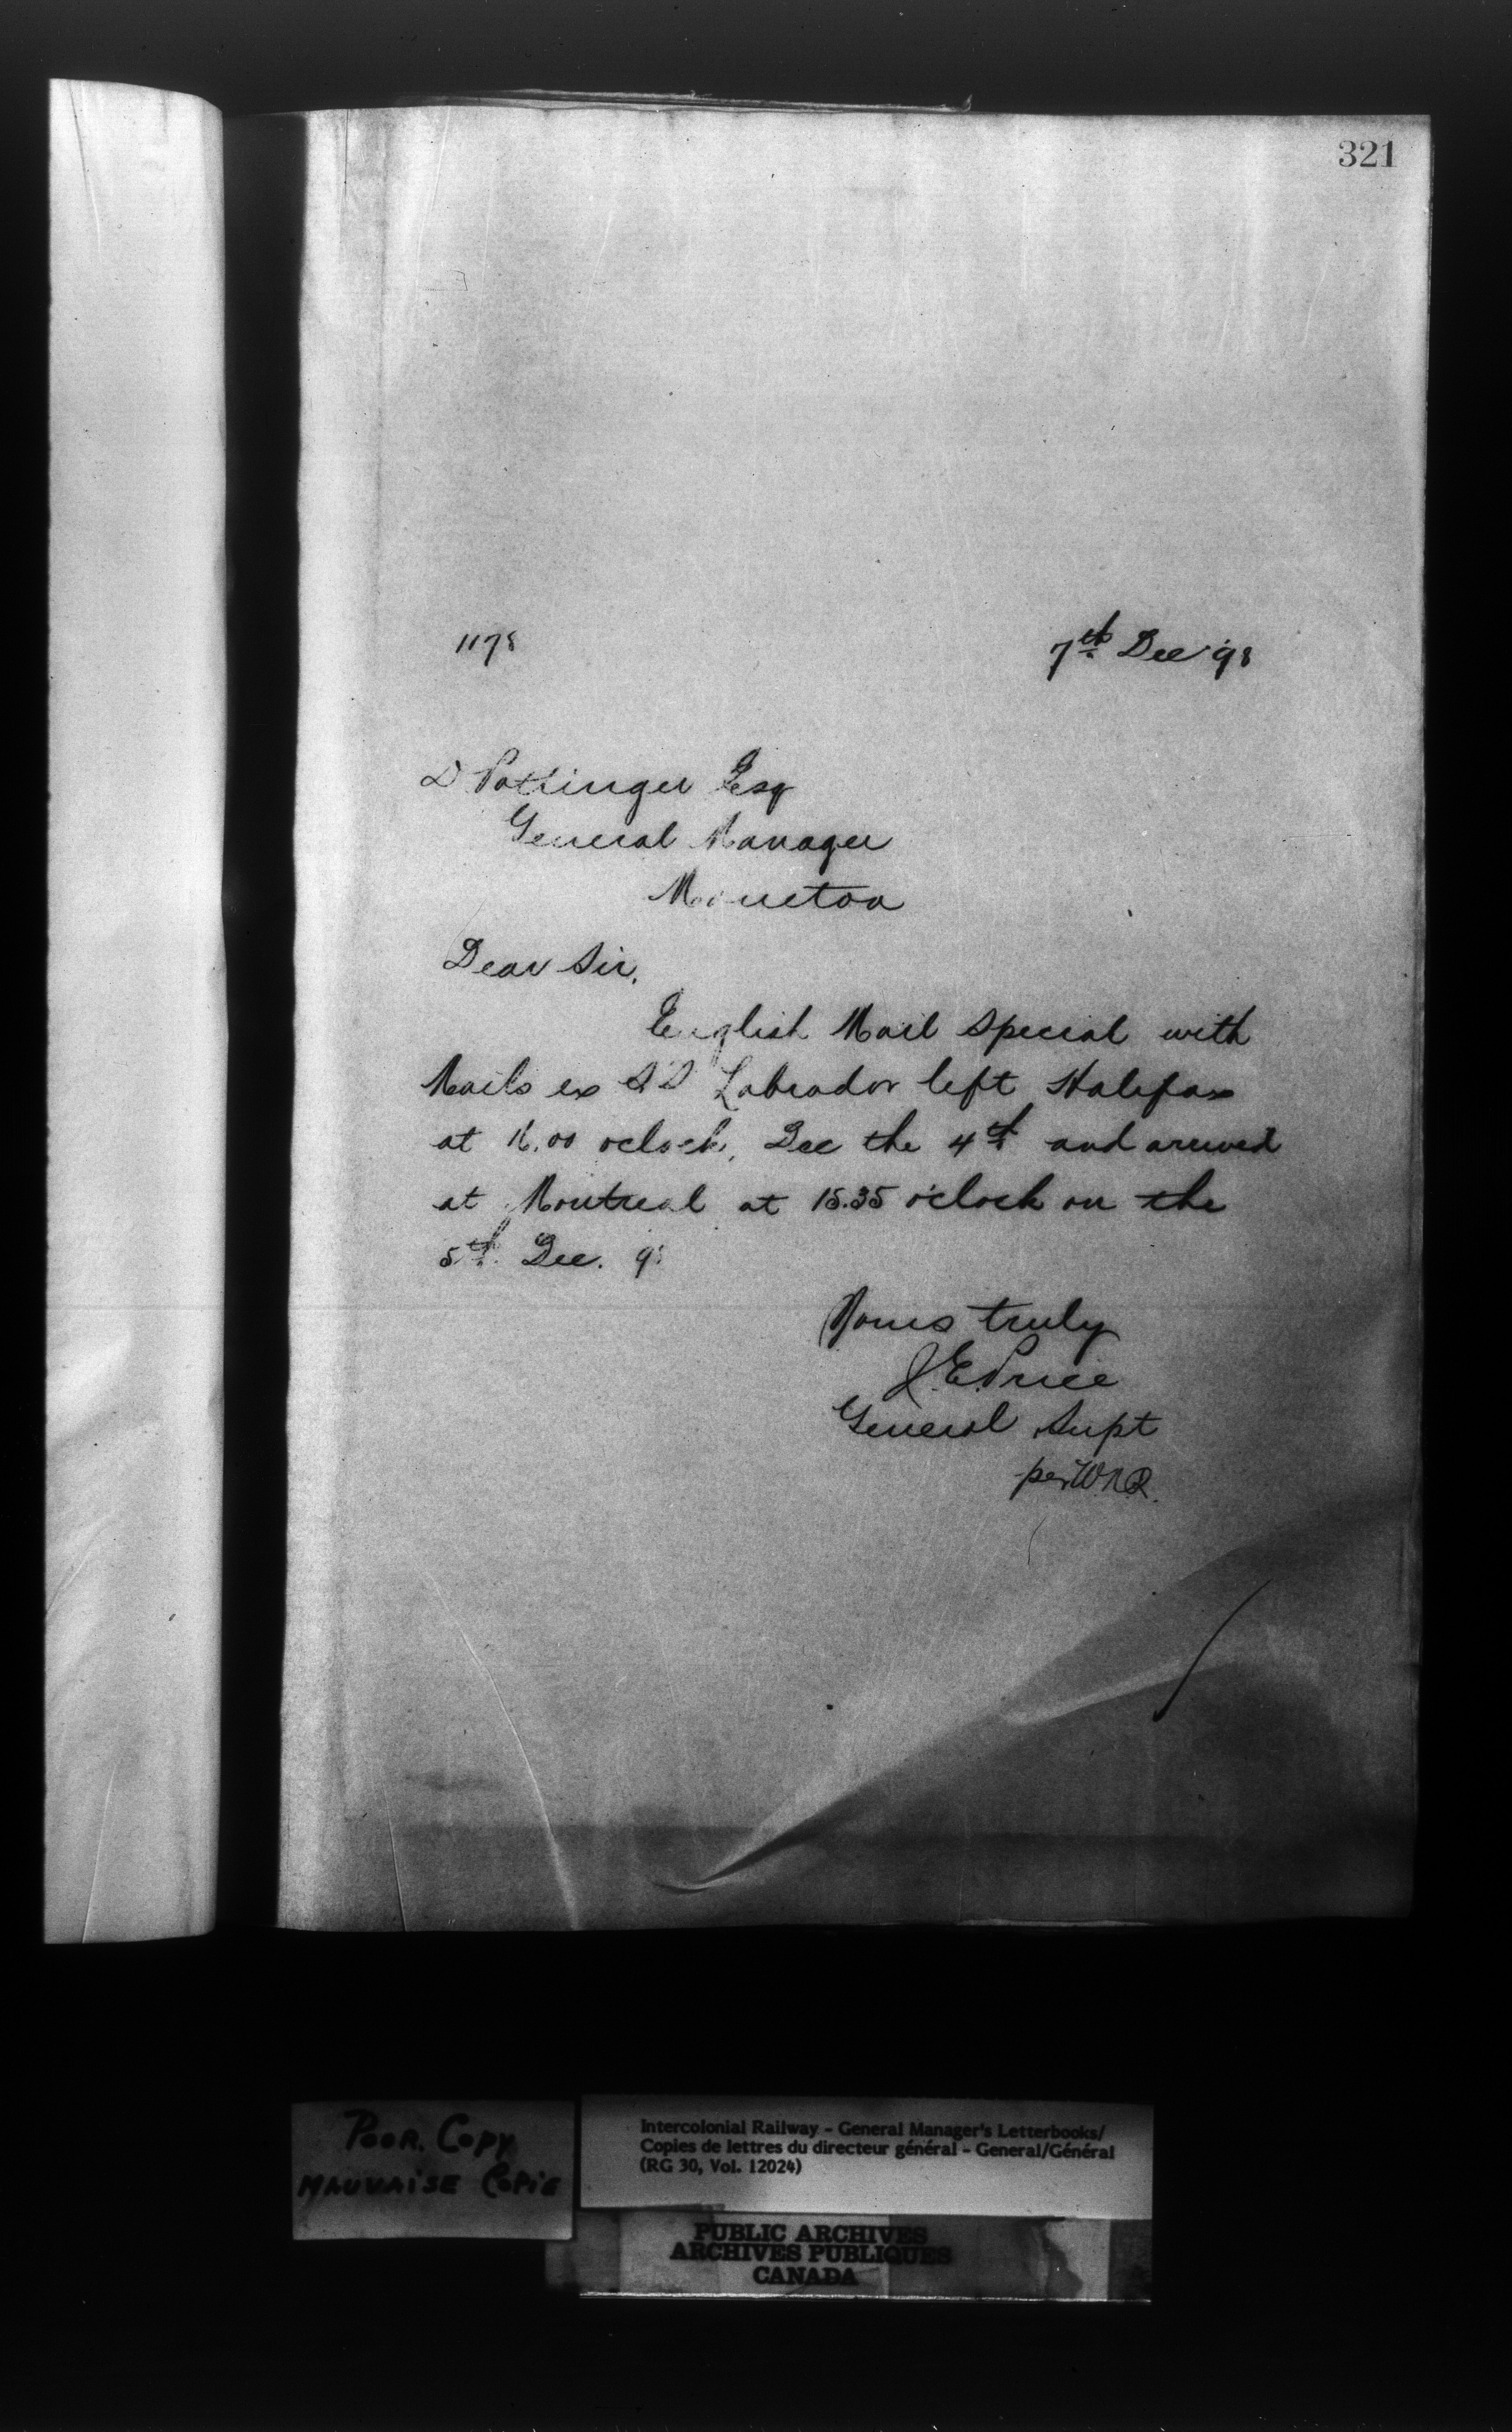 321
1178 7th Dec '98
D Pottinger Esq
General Manager
Moncton
Dear Sir,
English Mail Special with
Mails ex SS Labrador left Halifax
at 16.00 oclock, Dec the 4th and arrived
at Montreal at 15.35 o'clock on the
5th Dec. 98
Yours truly
J.E. Price
General Supt
per W.N.R.
Poor Copy
Mauvaise Copie
Intercolonial Railway - General Manager's Letterbooks/
Copies de lettres du directeur général - General/Général
(RG 30, Vol. 12024)
PUBLIC ARCHIVES
ARCHIVES PUBLIQUES
CANADA